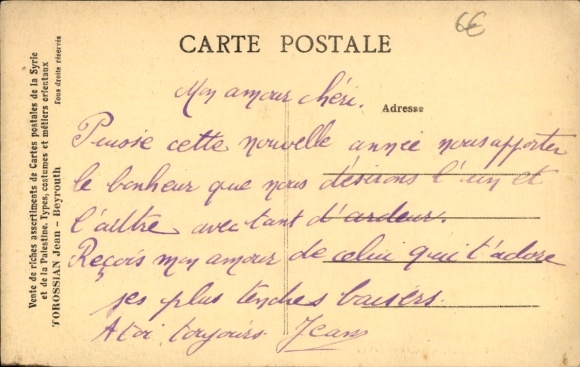 6€
CARTE POSTALE
Adresse
Mon amour chéri.
Puisse cette nouvelle année nous apporter
le bonheur que nous désirons l'un et
l'autre avec tant d'ardeur.
Reçois mon amour de celui qui t'adore
ses plus tendres baisers.
A toi toujours Jean
Vente de riches assortiments de Cartes postales de la Syrie
et de la Palestine. Types, costumes et métiers orientaux
TOROSSIAN Jean - Beyrouth Tous droits réservés